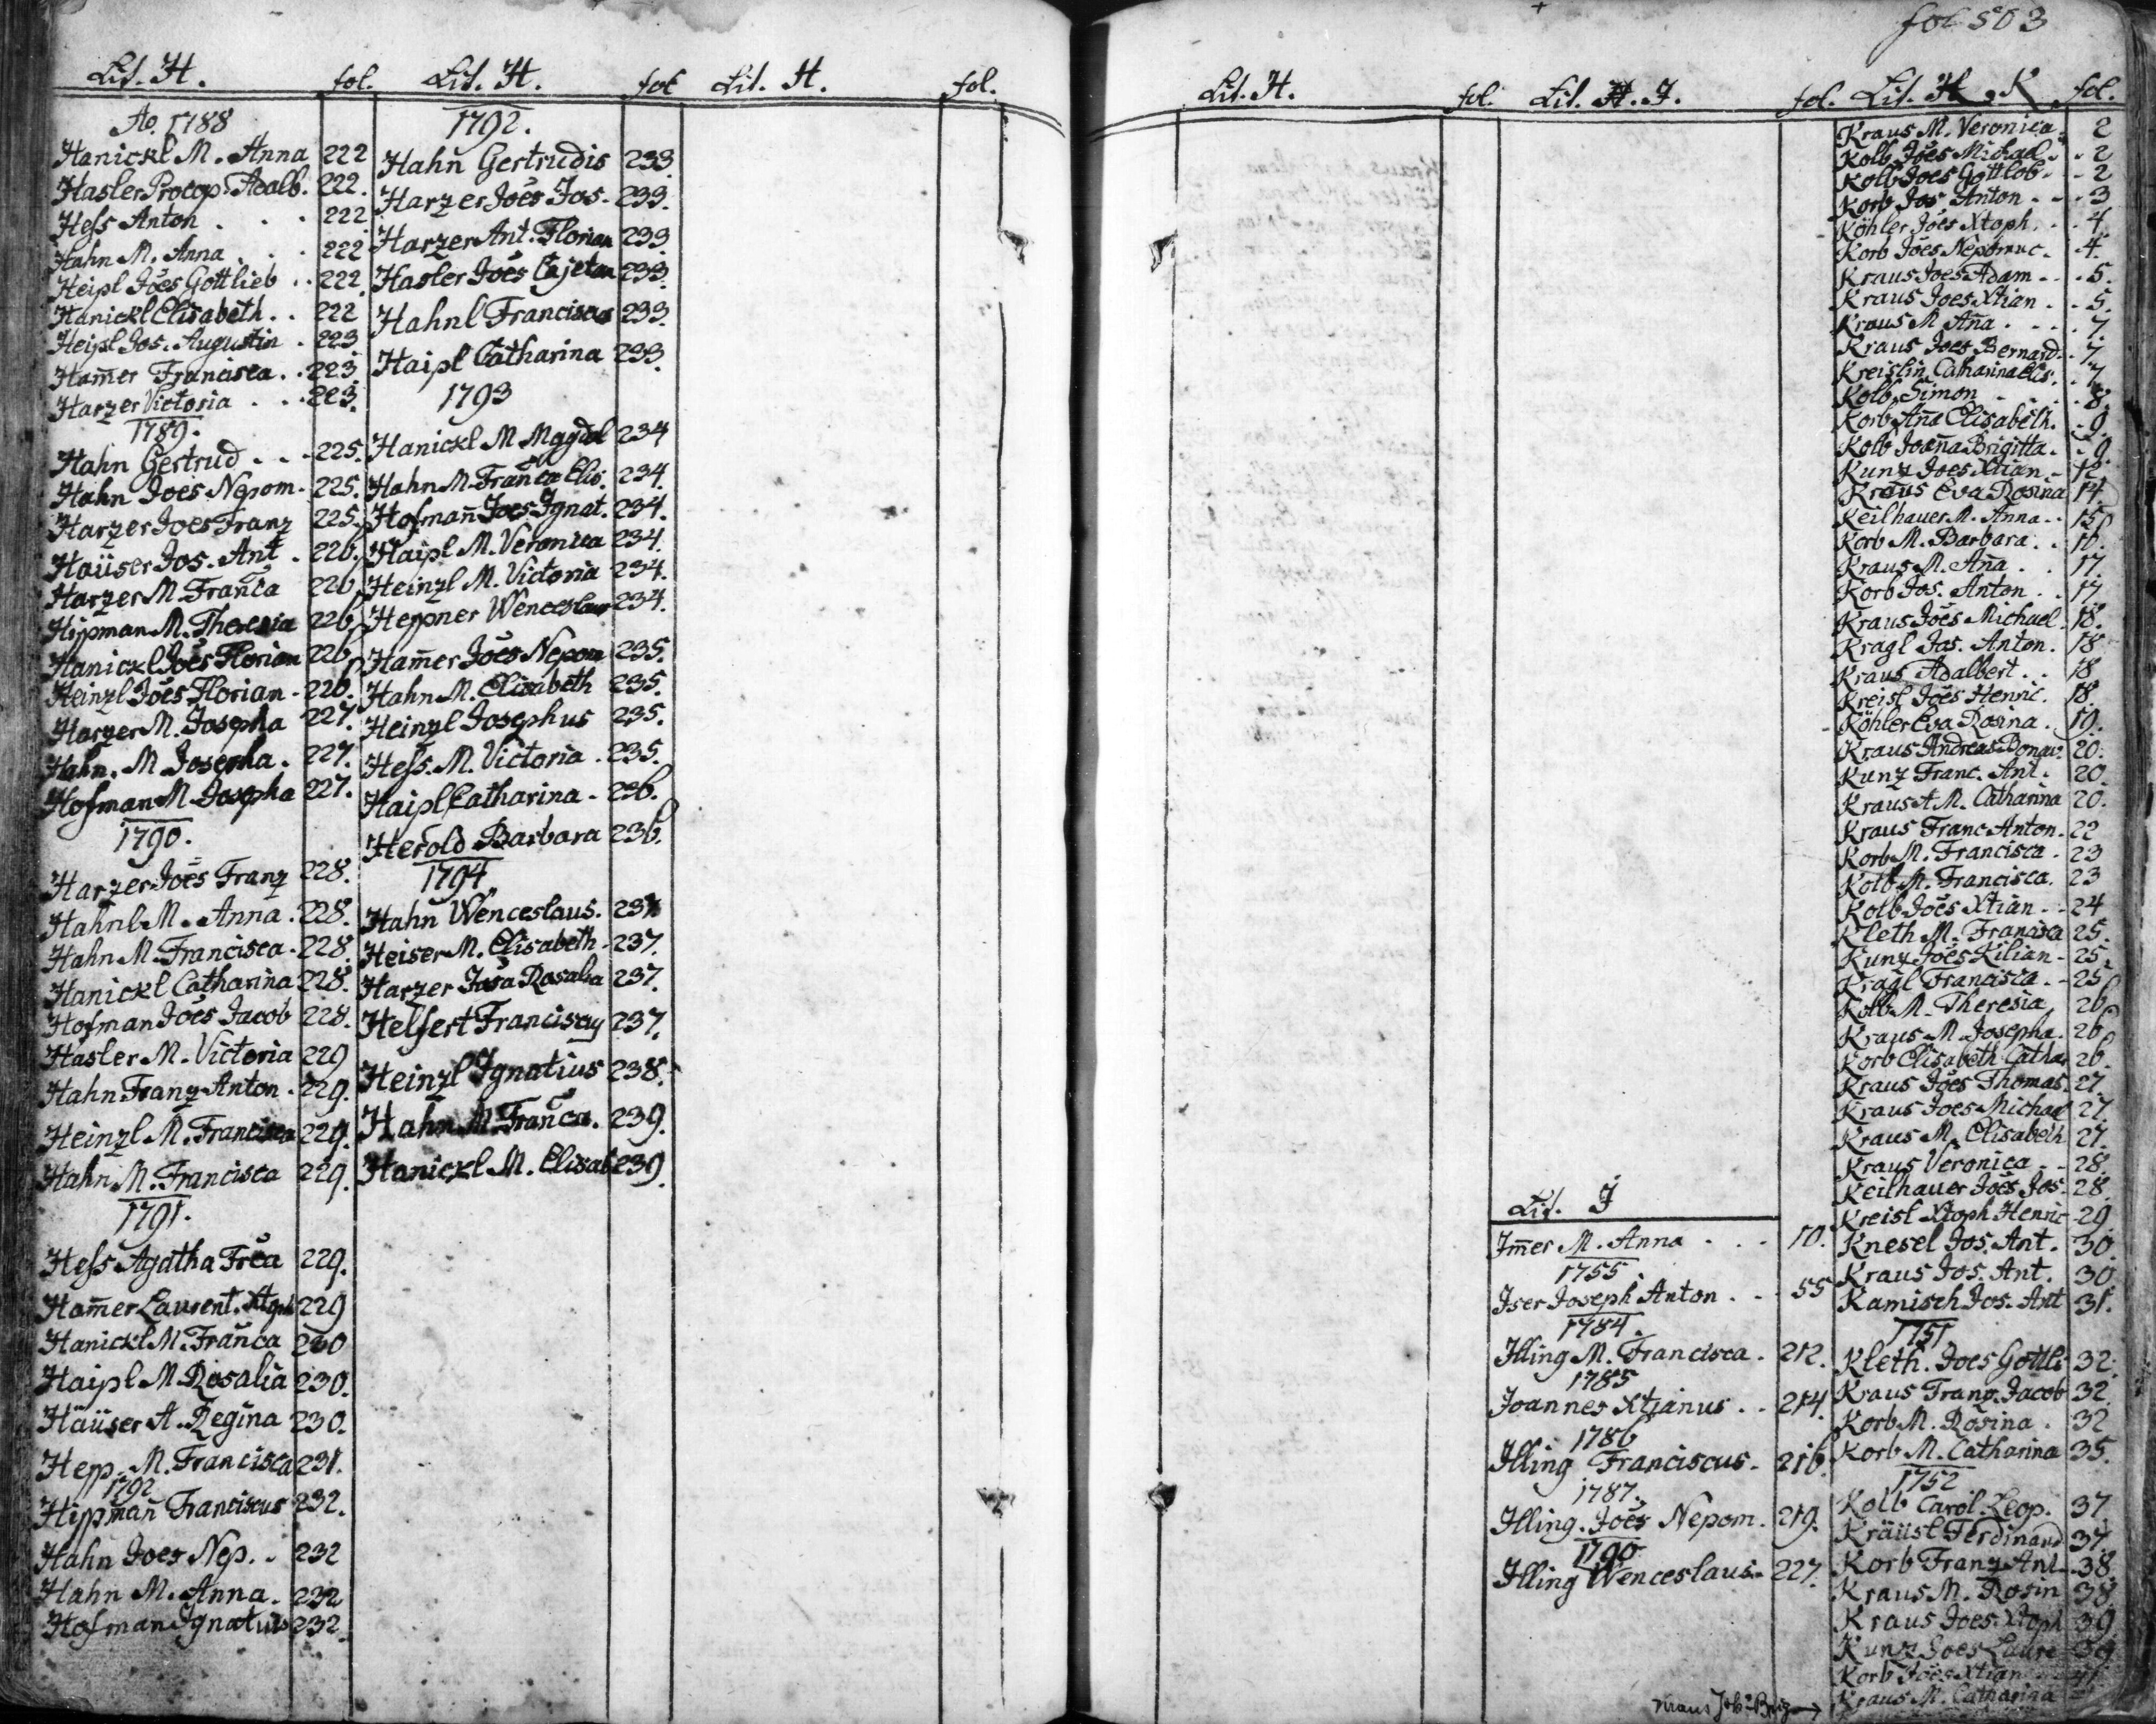 fol 503
Lit. H. fol. Lit. H. fol Lit. H. fol.
Ao. 1788
Hanickl M. Anna 222
Hasler Procop. Adalb. 222.
Heſs Anton . . . 222
Hahn M. Anna . . . 222
Heipl Jões Gottlieb . . 222.
Hanickl Elisabeth . . 222
Heipl Jos. Augustin . 223
Ham̄er Francisca . . 223
Harzer Victoria . . . 223.
1789.
Hahn Gertrud . . . 225.
Hahn Joes Nepom. 225.
Harzer Joes Franz 225.
Haüser Jos. Ant . 226.
Harzer M. Franca 226
Hipman M. Theresia 226
Hanickl Jões Florian 226
Heinzl Jões Florian - 226.
Harzer M. Josepha 227.
Hahn. M Josepha . 227.
Hofman M. Josepha 227.
1790.
Harzer Jões Franz 228.
Hahnl M. Anna . 228.
Hahn M. Francisca . 228.
Hanickl Catharina 228.
Hofman Jões Jacob 228.
Hasler M. Victoria 229
Hahn Franz Anton . 229.
Heinzl M. Francisca 229.
Hahn M. Francisca 229.
1791.
Heſs Agatha Frca 229.
Ham̄er Laurent. Xtoph 229
Hanickl M. Franca 230
Haipl M. Rosalia 230.
Haüser A. Regina 230.
Hep. M. Francisca 231.
1792
Hippman̄ Franciscus 232.
Hahn Joes Nep. . 232
Hahn M. Anna . 232
Hofman Ignatius 232.
1792.
Hahn Gertrudis 233
Harzer Jões Jos. 233.
Harzer Ant. Florian 233
Hasler Jões Cajetan 233.
Hahnl Franciscus 233.
Haipl Catharina 233
1793
Hanickl M Magdal 234
Hahn M. Franca Elis. 234.
Hofman̄ Joes Ignat. 234.
Haipl M. Veronica 234.
Heinzl M. Victoria 234.
Heppner Wenceslaus 234.
Ham̄er Jões Nepom 235.
Hahn M. Elisabeth 235.
Heinzl Josephus 235.
Heſs. M. Victoria . 235.
Haipl Catharina - 236.
Herold Barbara 236.
1794
Hahn Wenceslaus. 237
Heiser M. Elisabeth . 237.
Harzer Josa Rosalia 237.
Helfert Franciscus 237.
Heinzl Ignatius 238.
Hahn M. Franca. 239.
Hanickl M. Elisab 239.
Lit. H. fol. Lit. H. I. fol. Lit. H. K fol.
Lit. I
Im̄er M. Anna . . . 10.
1755.
Iser Joseph Anton . . 55
1784.
Illing M. Francisca . 212.
1785
Joannes Xtianus . . 214.
1786
Illing Franciscus - 216.
1787.
Illing. Jões Nepom . 219.
1790
Illing Wenceslaus - 227.
Kraus M. Veronica . 2
Kolb Jões Michael . . 2
Kolb Joes Gottlob . . 2
Korb Jos Anton . . . 3
Köhler Jões Xtoph . . 4.
Korb Jões Nepomuc . 4.
Kraus Joes Adam . . . 5.
Kraus Joes Xtian . . 5.
Kraus M An̄a . . . . 7.
Kraus Joes Bernard. . 7
Kreislin Catharina Elis. . 7
Kolb Simon . . . 8
Korb An̄a Elisabeth. . 9
Kolb Joan̄a Brigitta . . 9.
Kunz Joes Xtian - 12
Kraus Eva Rosina 14.
Keilhauer M. Anna . . 15
Korb M. Barbara . . 16.
Kraus M. An̄a . . 17.
Korb Jos. Anton . . 17
Kraus Jões Michael . 18.
Kragl Jos. Anton . 18
Kraus Adalbert . . 18
Kreisl Jões Henric. 18.
Köhler Eva Rosina . 19.
Kraus Andreas Donav: 20.
Kunz Franc. Ant. 20
Kraus A M. Catharina 20.
Kraus Franc Anton . 22
Korb M. Francisca . 23
Kolb M. Francisca. 23
Kolb Jões Xtian . . 24
Kleth M. Francisca 25.
Kunz Jões Kilian - 25.
Kragl Francisca . - 25
Kolb M. Theresia 26
Kraus M. Josepha. 26
Korb Elisabeth Cathar 26.
Kraus Jões Thomas. 27.
Kraus Joes Michael 27.
Kraus M. Elisabeth 27.
Kraus Veronica . . 28.
Keilhauer Jões Jos. 28.
Kreisl Xtoph Henric 29.
Knesel Jos. Ant. 30.
Kraus Jos. Ant. 30.
Kamisch Jos. Ant 31.
1751
Kleth. Joes Gottl 32.
Kraus Franz. Jacob 32.
Korb M. Rosina . 32
Korb M. Catharina 35.
1752
Kolb Carol. Leop. 37
Kräüsl Ferdinand 37.
Korb Franz Ant . 38.
Kraus M. Rosin 38.
Kraus Joes. Xtoph 39.
Kunz Joes Laure 39
Korb Jões Xtian
Kraus M. Catharina